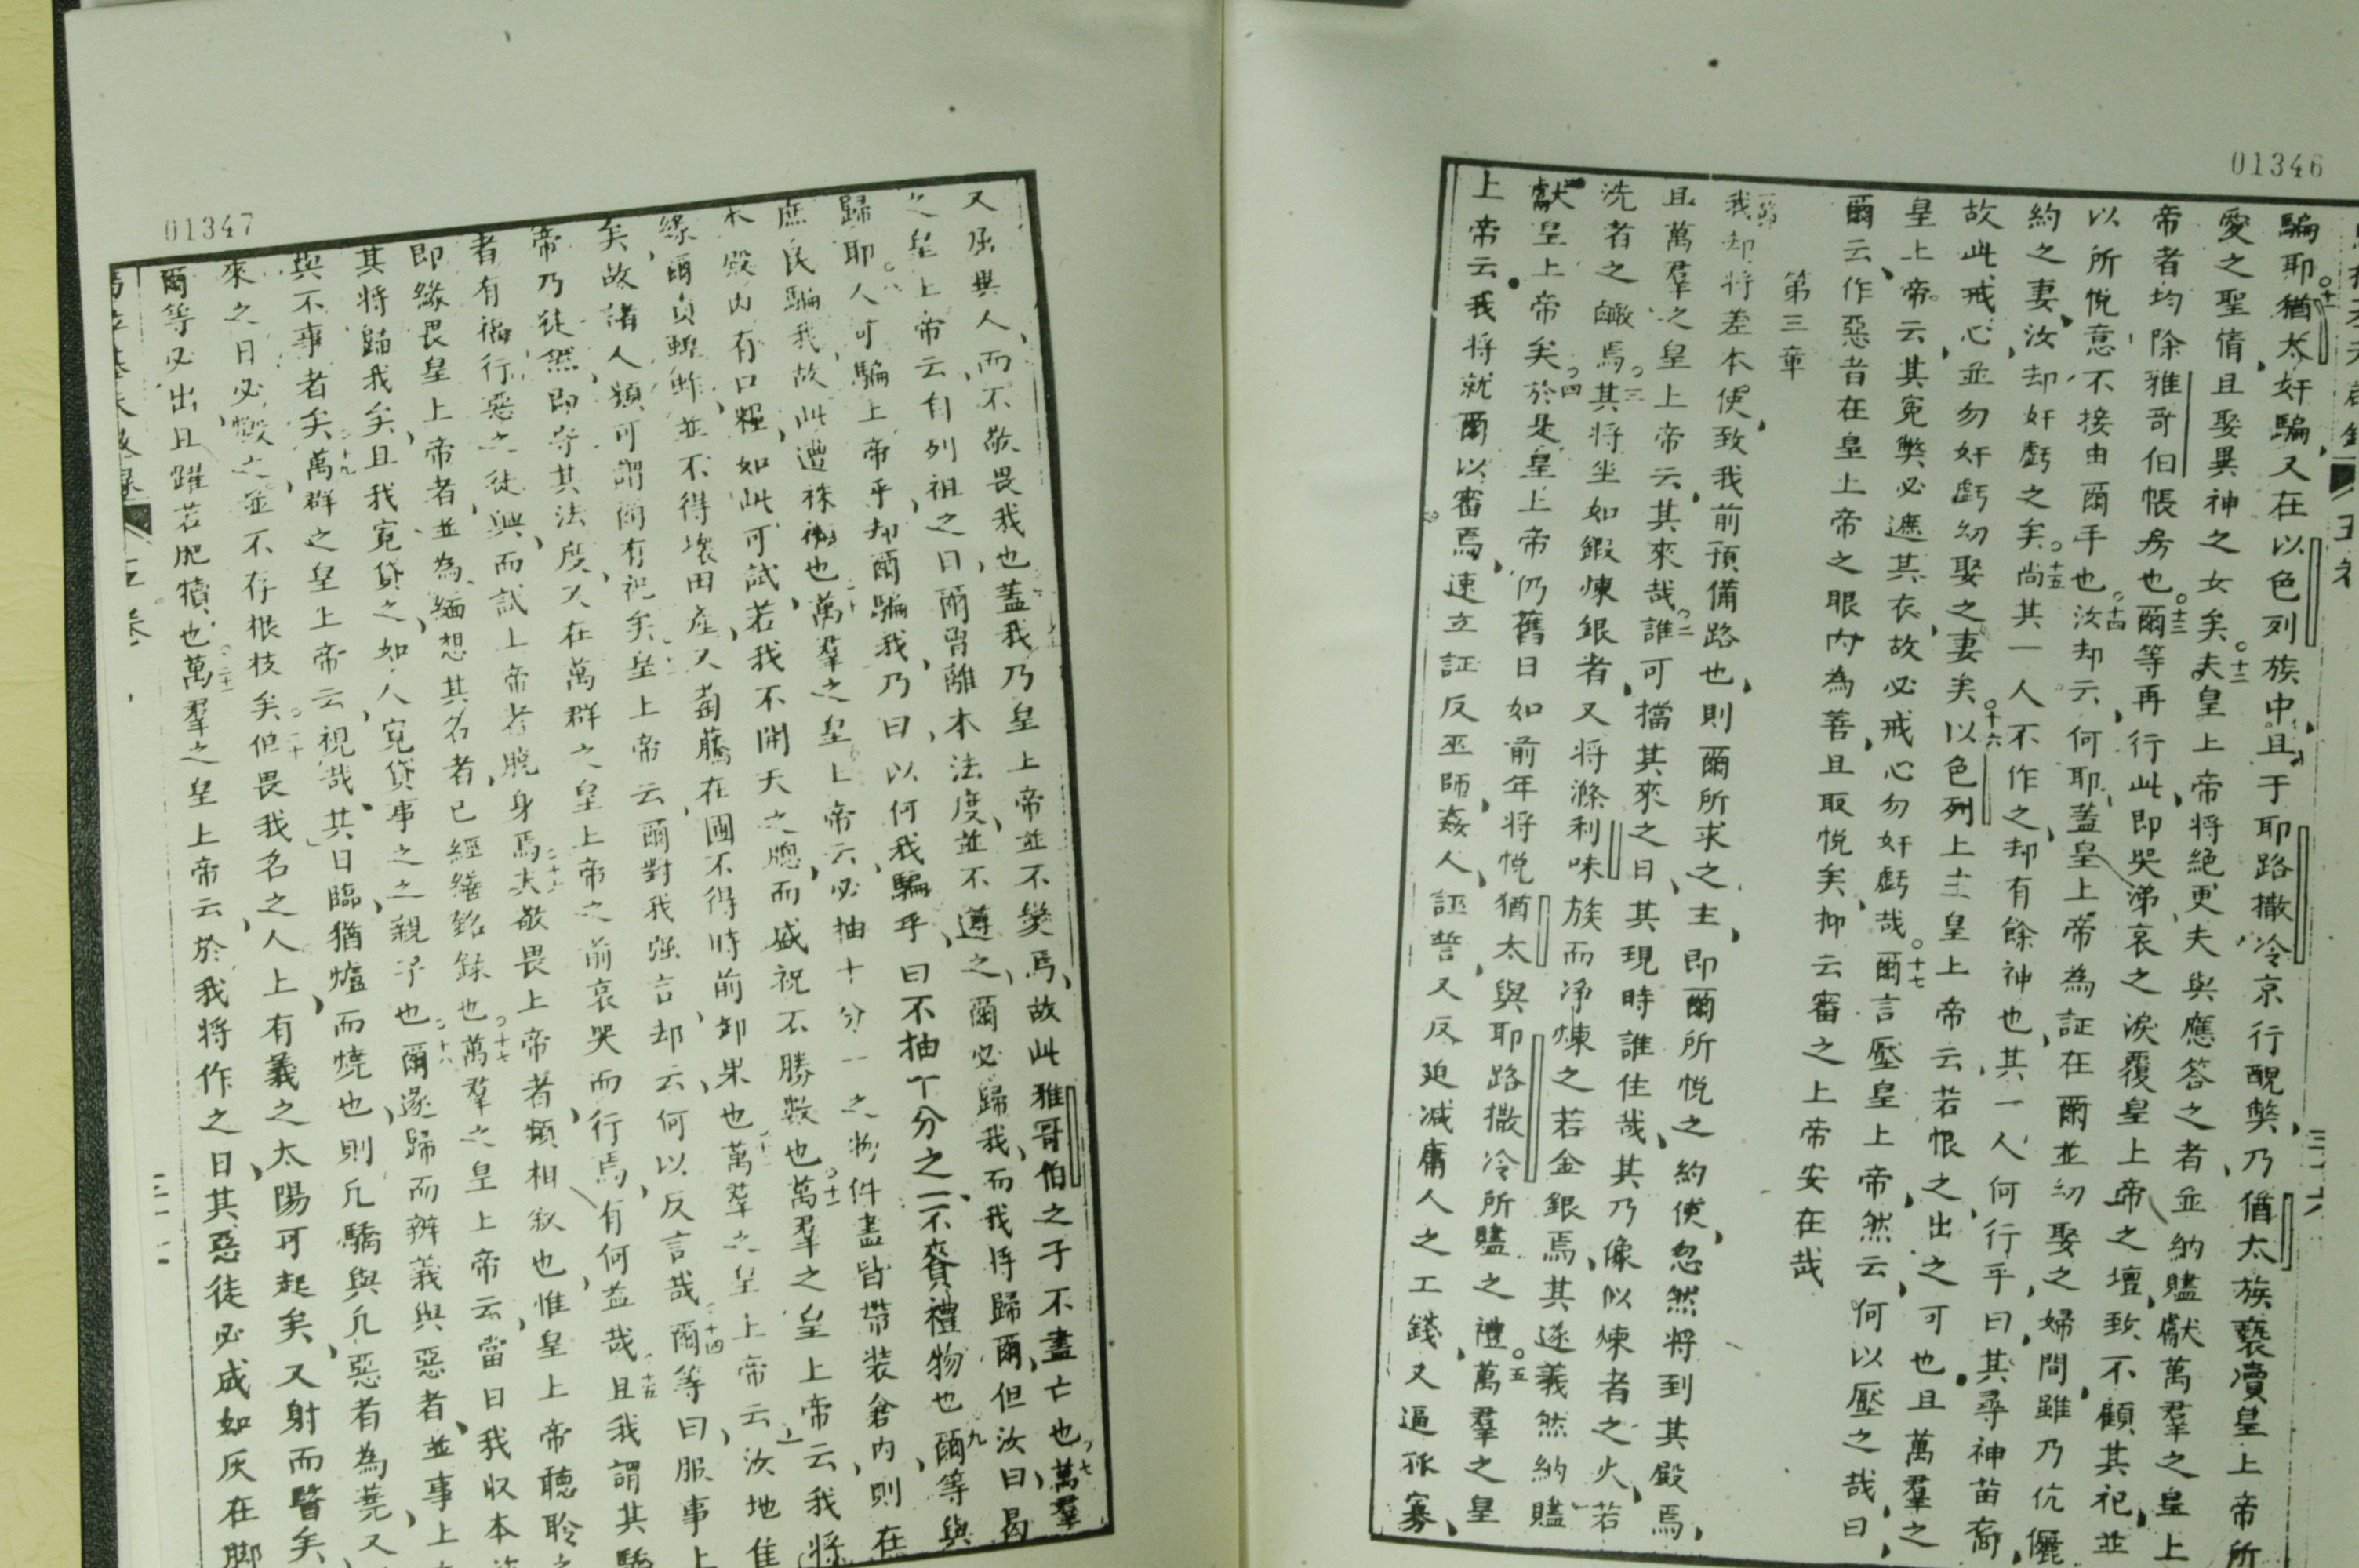 01346
騙耶猶太奸騙又在以色列族中且于耶路撒冷京行醜獘乃猶太族褻瀆皇上帝所
愛之聖情且娶異神之女矣夫皇上帝將絕更夫與應答之者並納贐獻萬羣之皇上
帝者均除雅哥伯帳房也爾等再行此即哭涕哀之淚覆皇上帝之壇致不顧其祀並
以所悅意不接由爾手也汝却云何耶蓋皇上帝為証在爾並幼娶之婦間雖乃伉儷
約之妻汝却奸虧之矣尚其一人不作之却有餘神也其一人何行乎曰其尋神苗裔
故此戒心並勿奸虧幼娶之妻矣以色列上主皇上帝云若恨之出之可也且萬羣之
皇上帝云其寃獘必遮其衣故必戒心勿奸虧哉爾言壓皇上帝然云何以壓之哉曰
爾云作惡者在皇上帝之眼內為善且取悅矣抑云審之上帝安在哉
第三章
我却將差本使致我前預備路也則爾所求之主即爾所悅之約使忽然將到其殿焉
且萬羣之皇上帝云其來哉誰可擋其來之日其現時誰住哉其乃像似煉者之火若
洗者之鹼焉其將坐如鍛煉銀者又將滌利味族而淨煉之若金銀焉其遂義然納贐
獻皇上帝矣於是皇上帝仍舊日如前年將悅猶太與耶路撒冷所贐之禮萬羣之皇
上帝云我將就爾以審焉速立証反巫師姦人誣誓又反廹減庸人之工錢又逼孤寡
01347
又屈異人而不敬畏我也蓋我乃皇上帝並不變焉故此雅哥伯之子不盡亡也萬羣
之皇上帝云自列祖之日爾嘗離本法度並不遵之爾必歸我而我将歸爾但汝曰曷
歸耶人可騙上帝乎却爾騙我乃曰以何我騙乎曰不抽十分之一不賫禮物也爾等與
庶民騙我故此遭殊禍也萬羣之皇上帝云必抽十分一之物件盡皆帶装倉內則在
本殿內有口糧如此可試若我不開天之牕而盛祝不勝數也萬羣之皇上帝云我將
緣爾責蝗蚱並不得壞田產又萄藤在園不得時前卸果也萬羣之皇上帝云汝地隹
矣故諸人類可謂爾有祝矣皇上帝云爾對我强言却云何以反言哉爾等曰服事上
帝乃徒然即守其法度又在萬群之皇上帝之前哀哭而行焉有何益哉且我謂其驕
者有福行惡之徒興而試上帝者脫身焉夫敬畏上帝者頻相叙也惟皇上帝聽聆之
即緣畏皇上帝者並為緬想其名者已經繕銘錄也萬羣之皇上帝云當日我収本
其將歸我矣且我寛貸之如人寛貸事之之親子也爾遂歸而辨義與惡者並事上
與不事者矣萬群之皇上帝云視哉其日臨猶爐而燒也則凢驕與凢惡者為蕘又
來之日必燬之並不存根枝矣但畏我名之人上有義之太陽可起矣又射而醫矣
爾等必出且躍若肥犢也萬羣之皇上帝云於我將作之日其惡徒必成如灰在脚